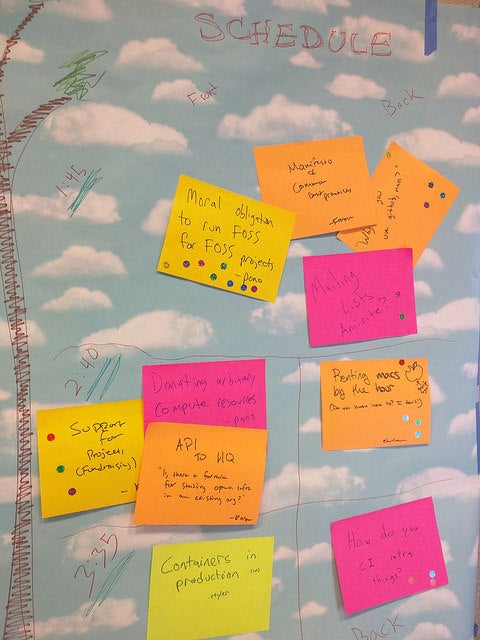 SCHEDULE
Front
Back
1:45
Manifesto
of
Common
best practices
Moral obligation
to run FOSS
for FOSS
projects
- pono
Mailing
Lists
Amirite?
2:40
Donating arbitrary
Compute resources
- pono
Renting macs
by the hour
Support
for
Projects
(Fundraising)
API
TO HQ
"Is there a formula
for starting open infra
in an existing org?"
3:35
Containers in
production
How do you
CI infra
things?
Back